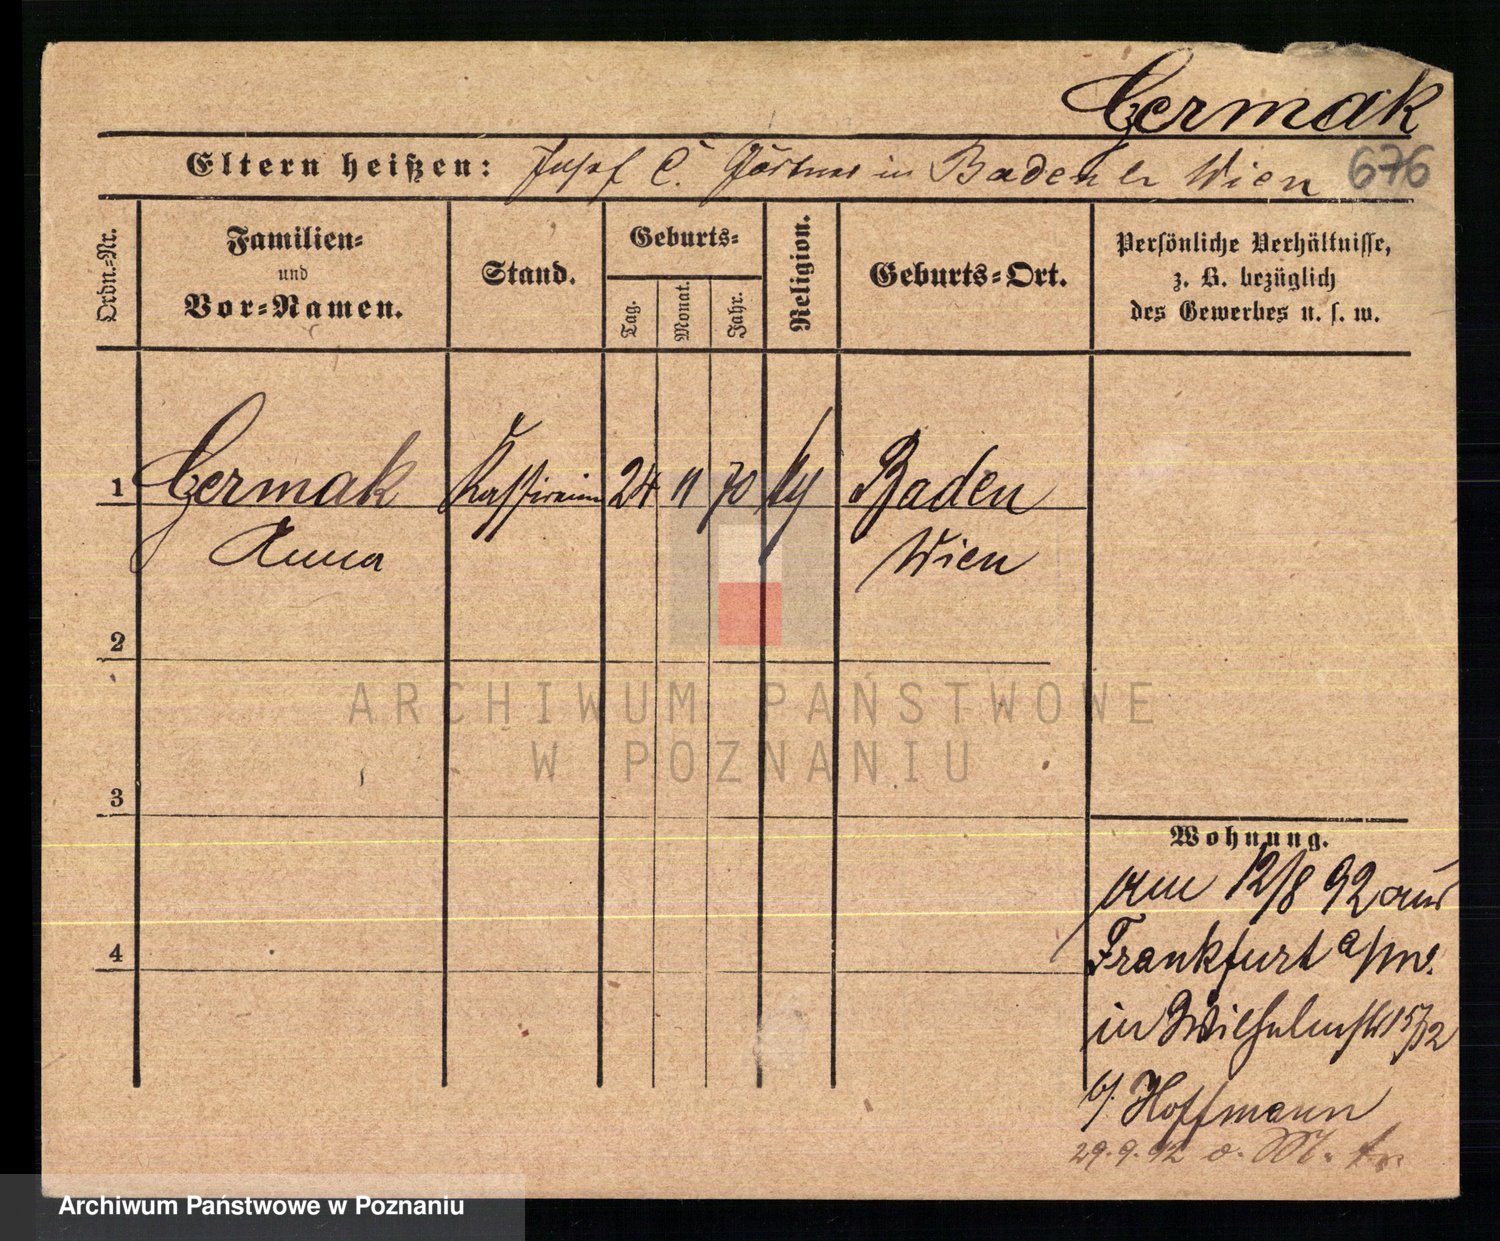 Czermak
676
Eltern heißen: Josef C. Gärtner in Baden b Wien
Ordn.-Nr.
Familien-
und
Vor-Namen.
Stand.
Geburts-
Tag.
Monat.
Jahr.
Religion.
Geburts-Ort.
Persönliche Verhältnisse,
z. B. bezüglich
des Gewerbes u. s. w.
1 Czermak Kassirerin 24 11 70 Baden
Anna Wien
2
ARCHIWUM PAŃSTWOWE
W POZNANIU
3
Wohnung.
am 12/8 92 aus
Frankfurt a/m.
in Wilhelmstr 15/2
b/. Hoffmann
4
29.9.92
Archiwum Państwowe w Poznaniu